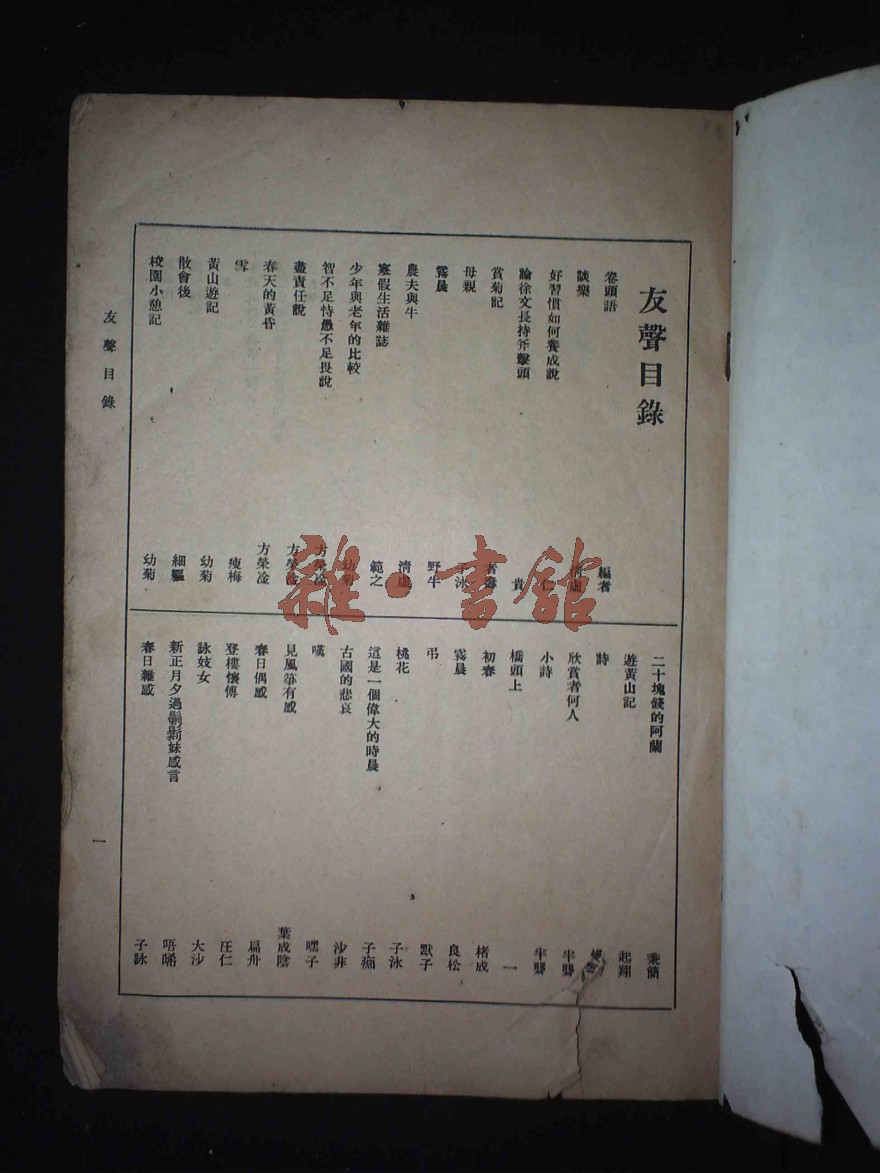 友聲目錄
卷頭語 編者
談樂 清虛
好習慣如何養成說
論徐文長持斧擊頭 貴
賞菊記
母親 冰
霧晨 野牛
農夫與牛 清虛
寒假生活雜誌 範之
少年與老年的比較 幼菊
智不足恃愚不足畏說 方榮淦
盡責任說 方榮淦
春天的黃昏 方榮淦
雪 瘦梅
黃山遊記 幼菊
散會後 細軀
校園小憩記 幼菊
二十塊錢的阿蘭 秉簡
遊黃山記 起翔
詩
欣賞者何人 半聾
小詩 半聾
橋頭上 一
初春 楮成
霧晨 良松
弔 默子
桃花 子泳
這是一個偉大的時晨 子痴
古國的悲哀 沙非
嘆 嘿子
見風箏有感 葉成陰
春日偶感 扁舟
登樓懷傅 汪仁
詠妓女 大沙
新正月夕過妹感言 唔唏
春日雜感 子詠
友聲目錄
一
雜·書館